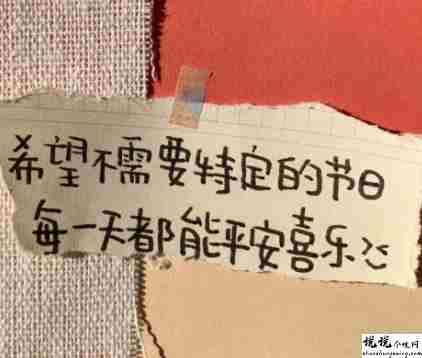 希望不需要特定的节日
每一天都能平安喜乐
说说个性网